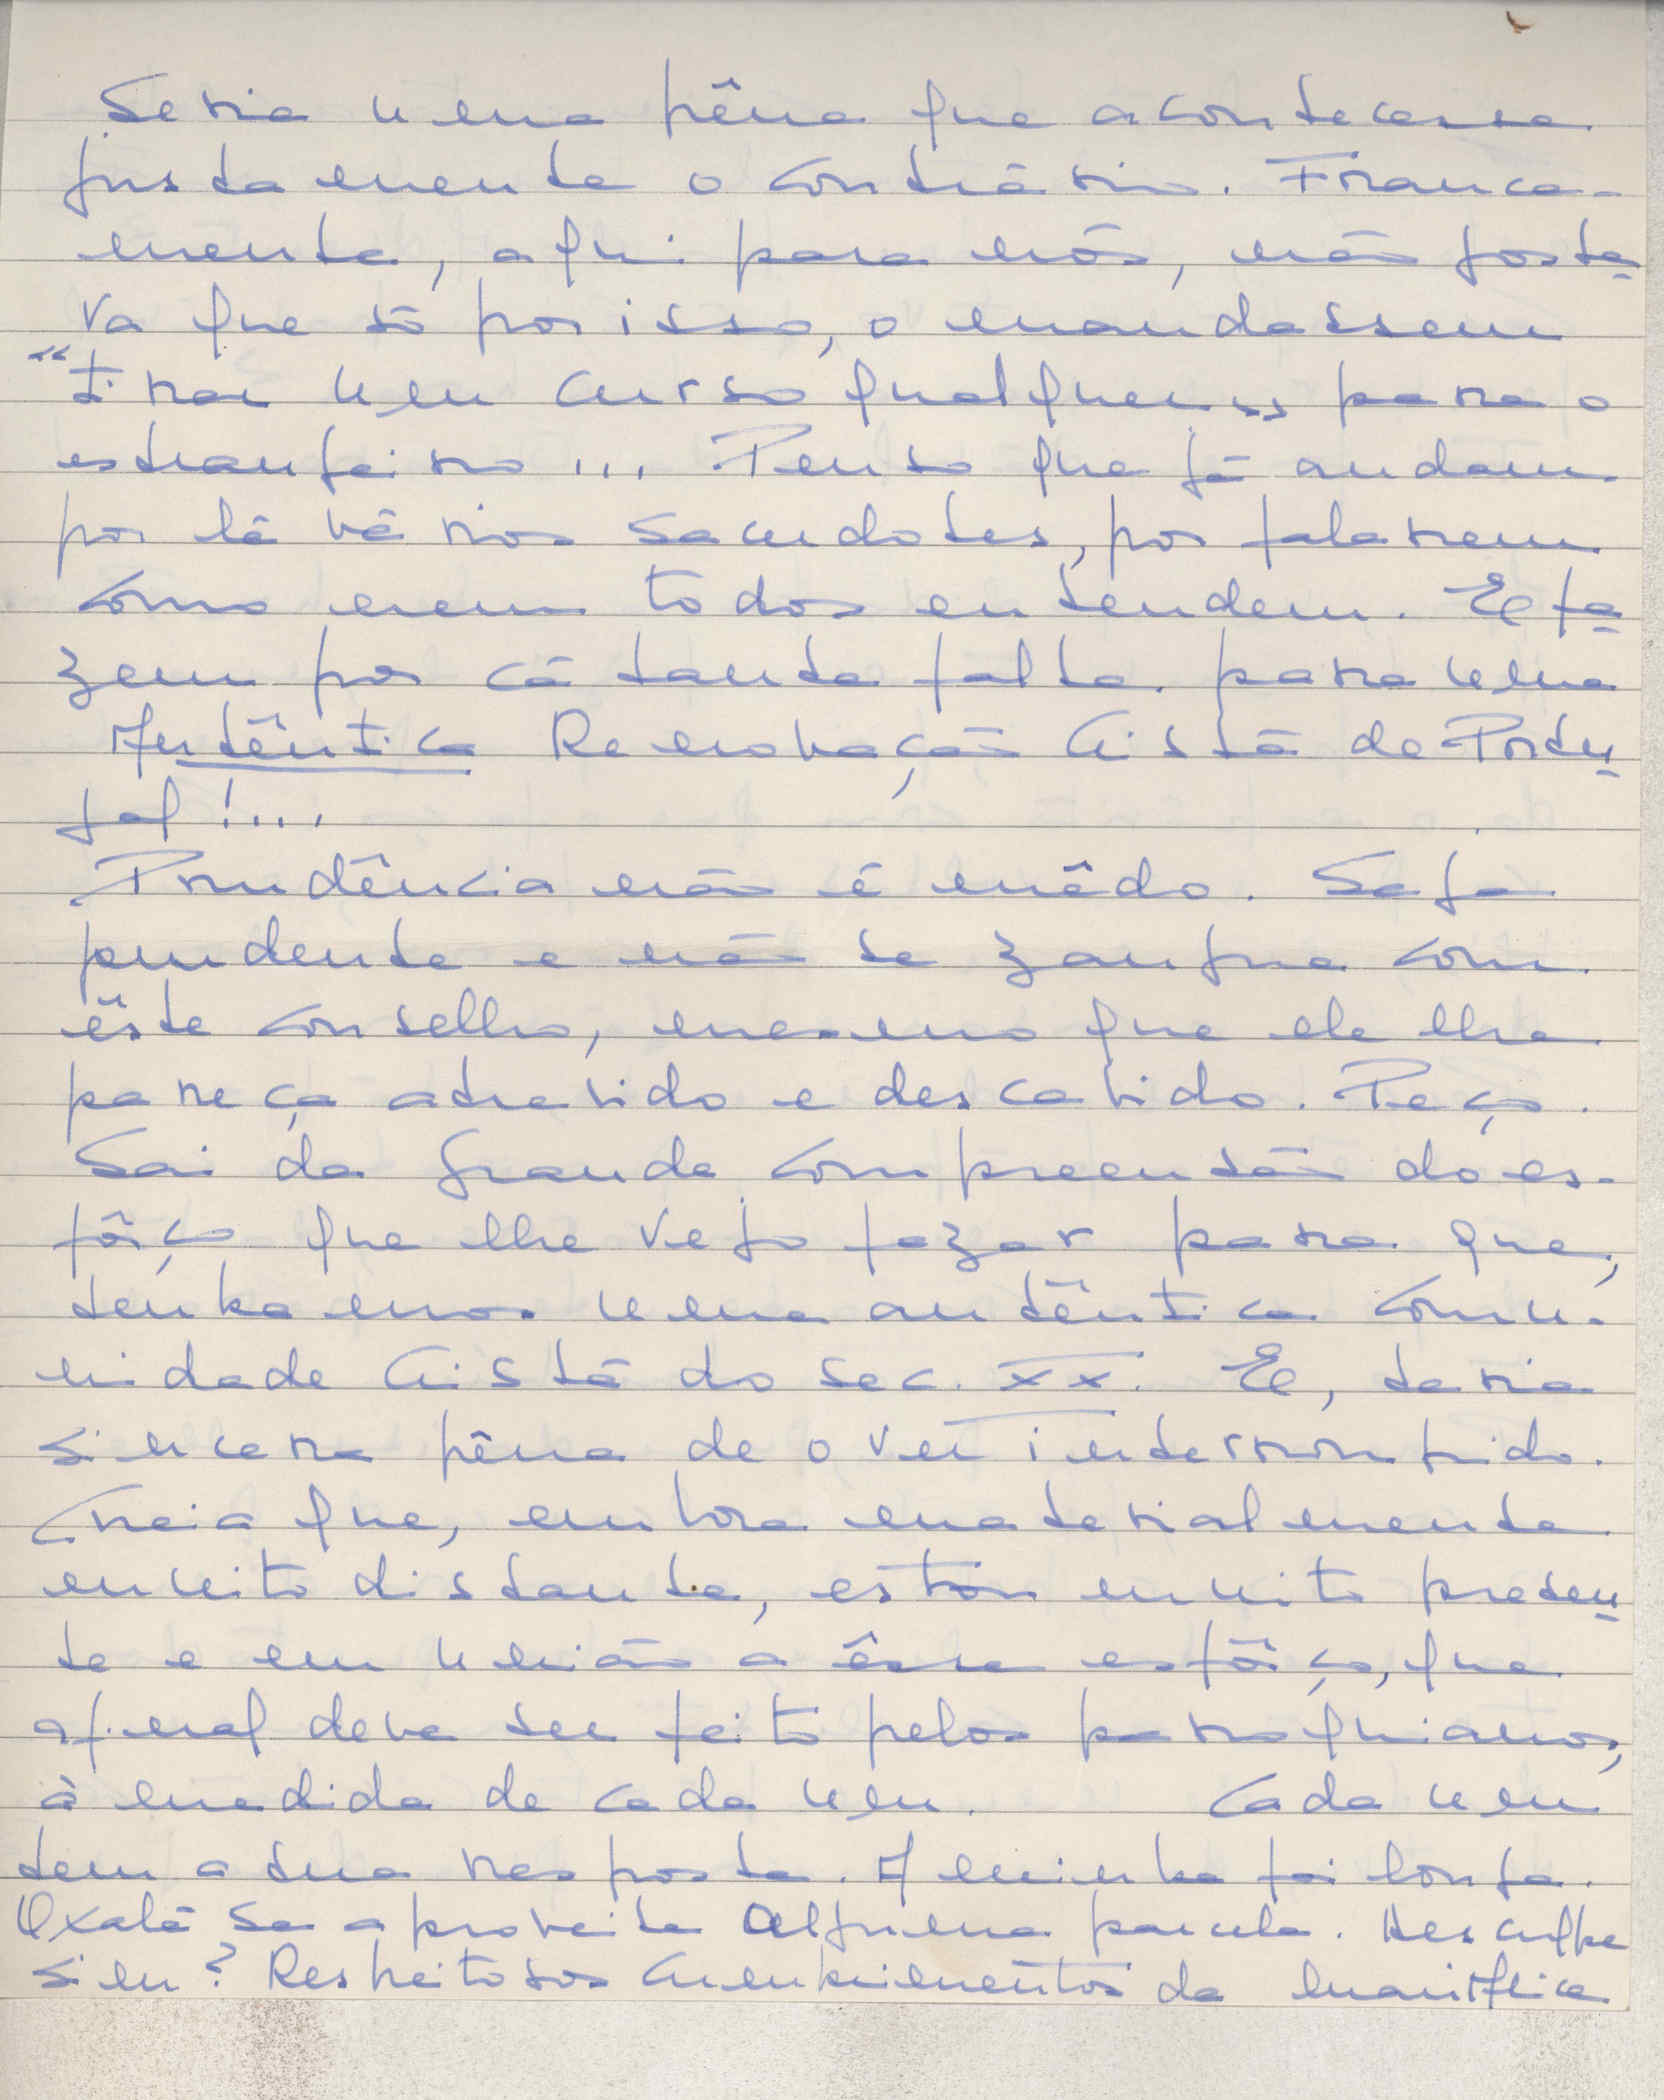 Seria uma pêna que acontecesse
justamente o contrário. Franca-
mente, aqui para nós, não gosta
va que só por isso, o mandassem
"tirar um curso qualquer" para o
estranjeiro... Penso que já andam
por lá vários sacerdotes, por falarem
como nem todos entendem. E fa
zem por cá tanta falta para uma
Autêntica Renovação Cristã de Portu
gal!...
Prudência não é mêdo. Seja
prudente e não se zangue com
êste conselho, mesmo que ele lhe
pareça atrevido e descabido. Peço.
Sai da grande compreensão do es-
fôrço que lhe vejo fazer para que,
tenhamos uma autêntica comu-
nidade Cristã do sec. XX. E, teria
sincera pêna de o ver interrompido.
Creia que, embora materialmente
muito distante, estou muito presen
te e em união a êsse esfôrço, que
afinal deve ser feito pelos paroquianos,
à medida de cada um. Cada um
tem a sua resposta. A minha foi longa.
Oxalá se aproveite alguma parcela. Desculpe
sim? Respeitosos cumprimentos da